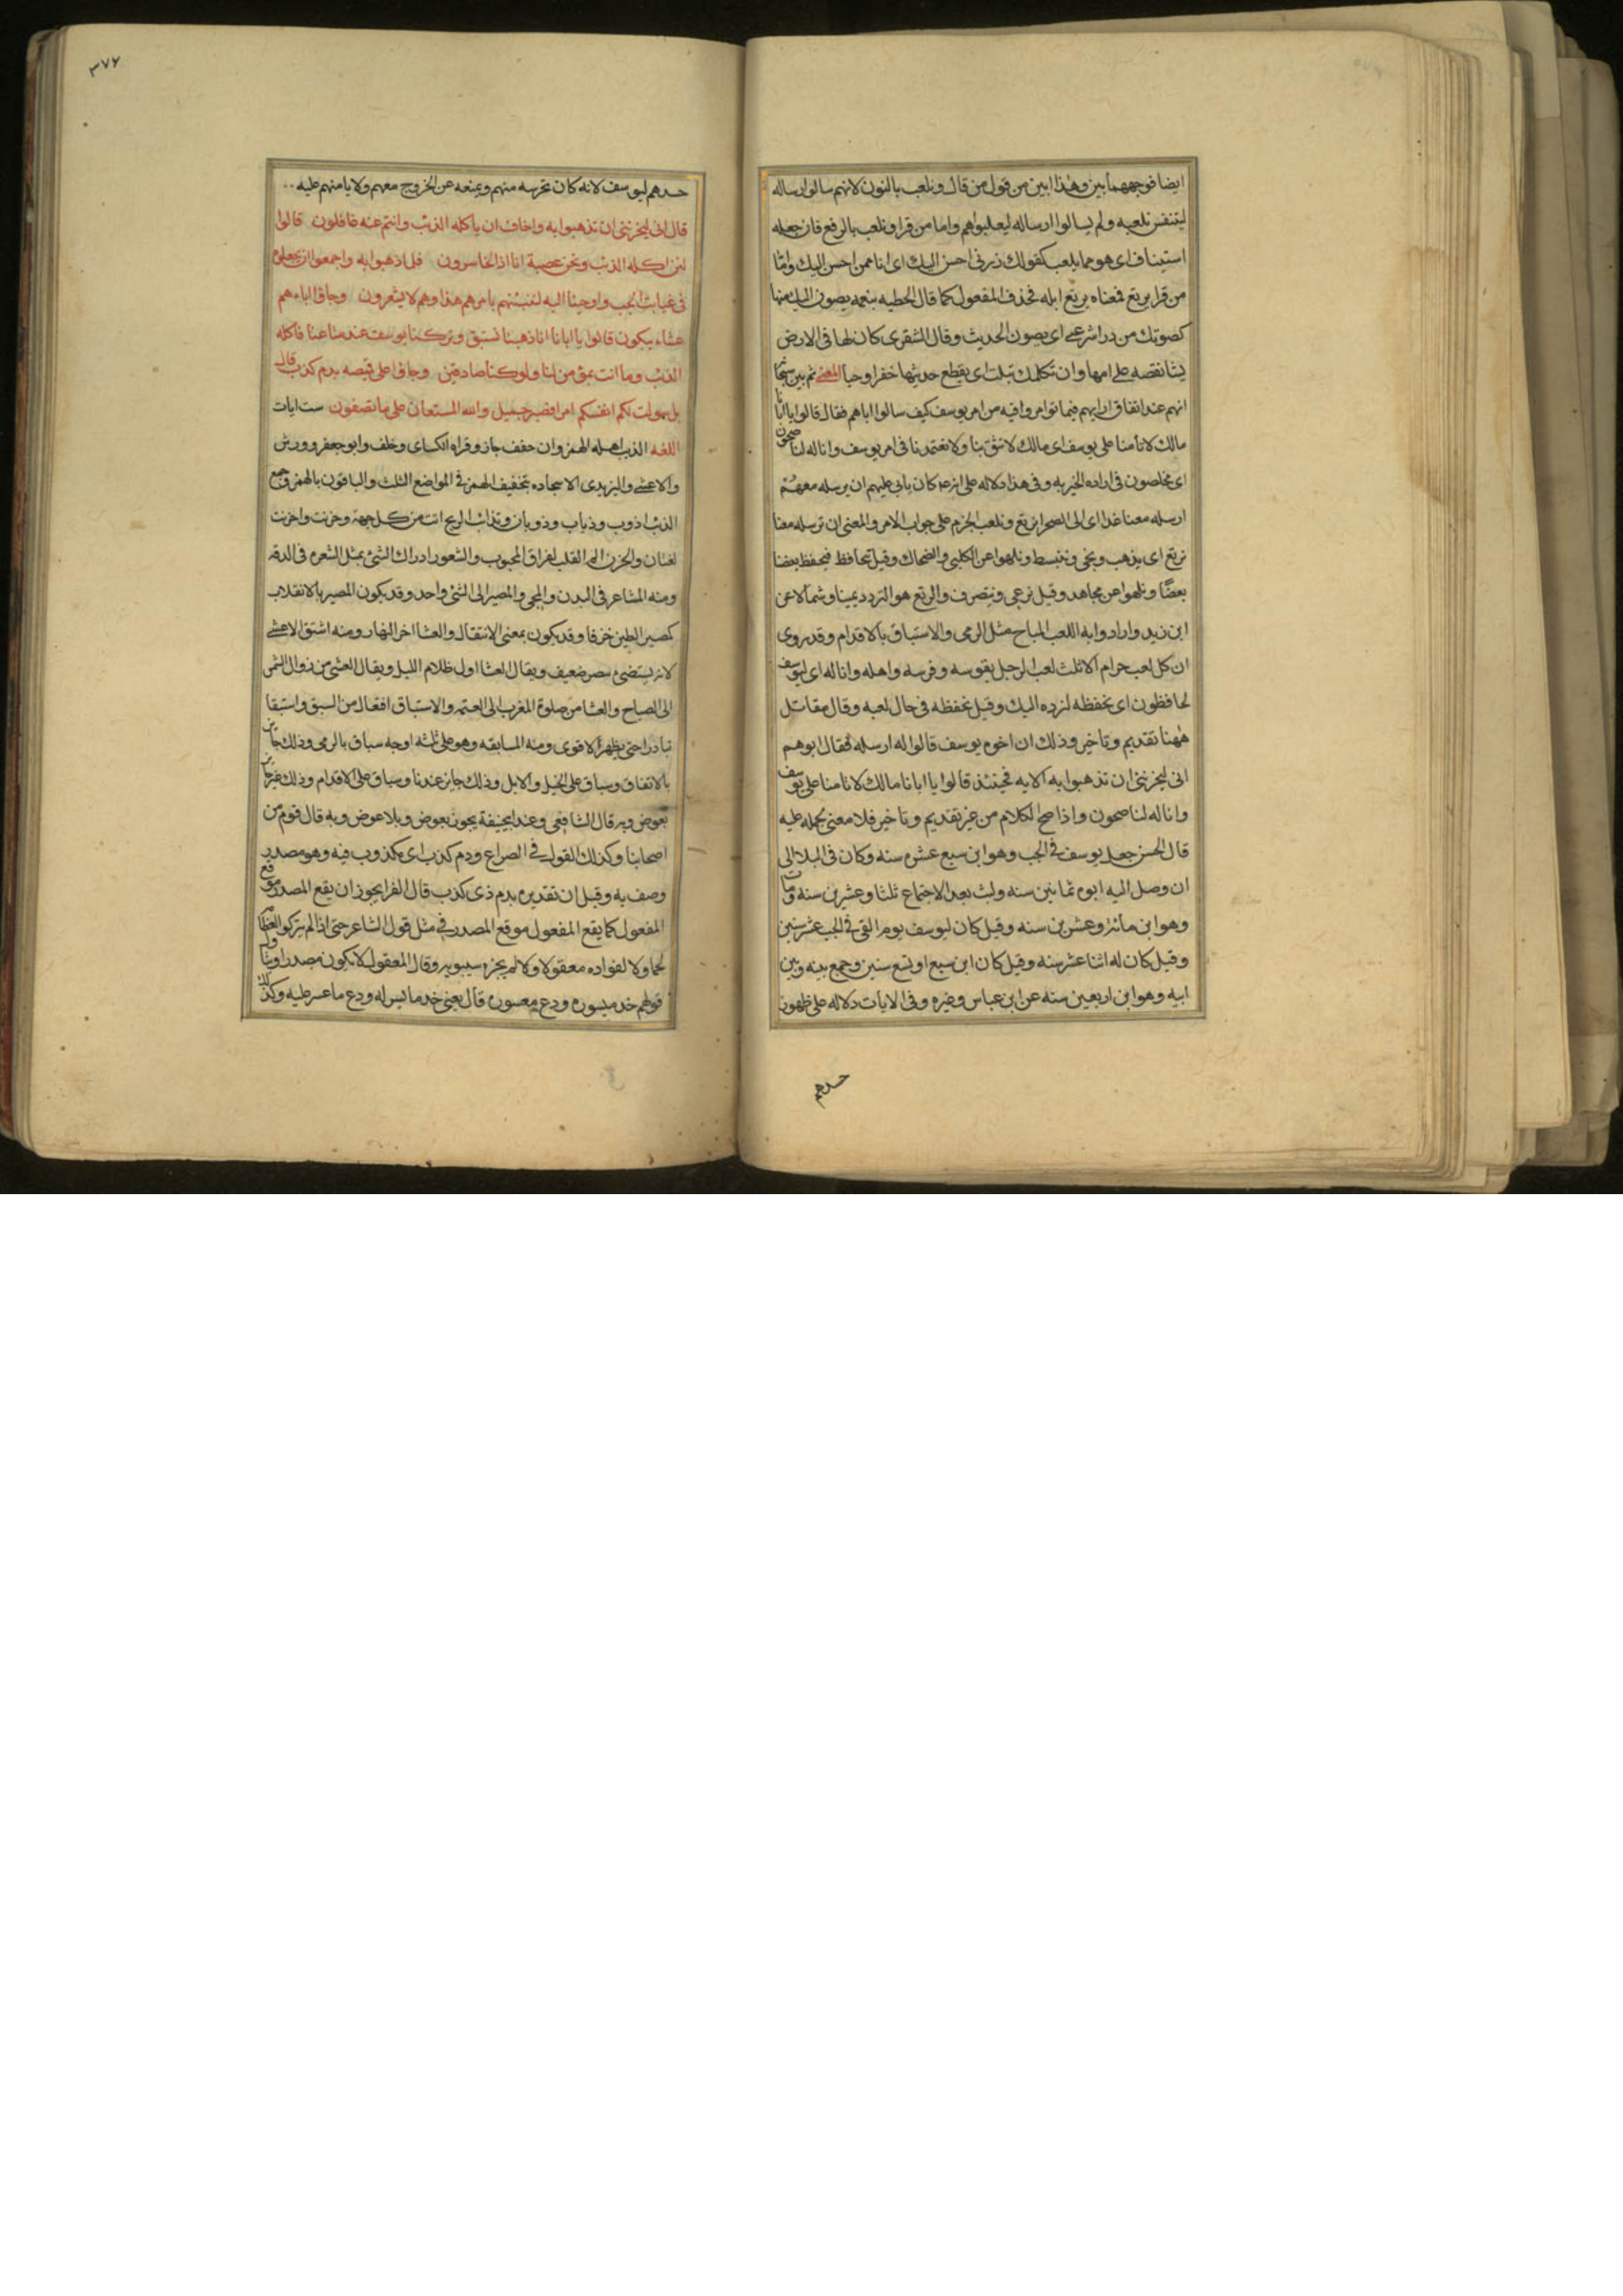 ايضا فوجههما بين وهذا ابين من قول من قال ونلعب بالنون لانهم سالوا ارساله
ليتنفس بلعبه ولم يسالوا ارساله ليعلبواهم واما من قرا ونلعب بالرفع فان جعله
استينافا اى هو مما يلعب كقولك ذرنى احسن اليك اى انا ممن احسن اليك واما
من قرا يرتع فمعناه يرتع ابله فحذف المفعول كما قال الحطيه يصون اليك منها
كصوتك من رداشرعى اى يصون الحديث وقال الشنفرى كان لها فى الارض
نسيا تقصه على امها وان تكلمك تبلت اى يقطع حديثها خفرا وحيا المعنى ثم بين سبحانه
انهم عند اتفاق ارايهم فيما توامروا فيه من امر يوسف كيف سالوا اباهم فقال قالوا يا ابانا
مالك لا تامنا على يوسف اى مالك لا تثق بنا ولا تعتمدنا فى امر يوسف وانا له لناصحون
اى مخلصون فى اراده الخير به وفى هذا دلاله على انه كان يابى عليهم ان يرسله معهم
ارسله معنا غدا اى الى الصحرا يرتع ونلعب الجزم على جواب الامر والمعنى ان ترسله معنا
نرتع اى يذهب ويجى وننبسط ونلهوا عن الكلبى والضحاك وقيل نتحافظ فيحفظ بعضنا
بعضا ونلهوا عن مجاهد وقيل نرعى ونتصرف والرتع هو التردد يمينا وشمالا عن
ابن زيد وارادوا به اللعب المباح مثل الرمى والاستباق بالاقدام وقد روى
ان كل لعب حرام الا ثلث لعب الرجل بقوسه وفرسه واهله وانا له اى ليوسف
لحافظون اى نحفظه لنرده اليك وقيل نحفظه فى حال لعبه وقال مقاتل
ههنا تقديم وتاخير وذلك ان اخوه يوسف قالوا له ارسله فقال ابوهم
انى ليحزننى ان تذهبوا به الايه فحينئذ قالوا يا ابانا مالك لا تامنا على يوسف
وانا له لناصحون واذا صح الكلام من غير تقديم وتاخير فلا معنى لحمله عليه
قال الحسن جعل يوسف فى الجب وهو ابن سبع عشره سنه وكان فى البلا الى
ان وصل اليه ابوه ثمانين سنه ولبث بعد الاجتماع ثلثا وعشرين سنه ومات
وهو ابن مائة وعشرين سنه وقيل كان ليوسف يوم القى فى الجب عشر سنين
وقيل كان له اثنا عشر سنه وقيل كان ابن سبع او تسع سنين وجمع بينه وبين
ابيه وهو ابن اربعين سنه عن ابن عباس وغيره وفى الايات دلاله على ظهور
حسدهم
٣٧٧
حسدهم ليوسف لانه كان يحرسه منهم ويمنعه عن الخروج معهم ولا يامنهم عليه
قال انى ليحزننى ان تذهبوا به واخاف ان ياكله الذئب وانتم عنه غافلون قالوا
لئن اكله الذئب ونحن عصبة انا اذا لخاسرون فلما ذهبوا به واجمعوا ان يجعلوه
فى غيابت الجب واوحينا اليه لتنبئنهم بامرهم هذا وهم لا يشعرون وجاؤا اباهم
عشاء يبكون قالوا يا ابانا انا ذهبنا نستبق وتركنا يوسف عند متاعنا فاكله
الذئب وما انت بمؤمن لنا ولو كنا صادقين وجاؤا على قميصه بدم كذب قال
بل سولت لكم انفسكم امرا فصبر جميل والله المستعان على ما تصفون ست ايات
اللغه الذئب اصله الهمز وان خفف جاز وقراه الكساى وخلف وابو جعفر وورش
والاعشى واليزيدى الا سجاده بتخفيف الهمز فى المواضع الثلث والباقون بالهمز وجمع
الذئب اذوب وذياب وذوبان وتذائب الريح اتت من كل جهة وحزنت واحزنت
لغتان والحزن الم القلب لفراق المحبوب والشعور ادراك الشئ بمثل الشعره فى الدقه
ومنه المشاعر فى البدن والمجى والمصير الى الشئ واحد وقد يكون المصير بالانقلاب
كمصير الطين خزفا وقد يكون بمعنى الانتقال والعشا اخر النهار ومنه اشتق الاعشى
لانه يستضئ ببصر ضعيف ويقال العشا اول ظلام الليل ويقال العشى من زوال الشمس
الى الصباح والعشا من صلوة المغرب الى العتمه والاستباق افتعال من السبق واستبقا
تبادرا حتى يظهر الاقوى ومنه المسابقه وهو على ثلثه اوجه سباق بالرمى وذلك جائز
بالاتفاق وسباق على الخيل والابل وذلك جائز عندنا وسباق على الاقدام وذلك غير جائز
بعوض وبه قال الشافعى وعند ابى حنيفة يجوز بعوض وبلا عوض وبه قال قوم من
اصحابنا وكذلك القول فى الصراع ودم كذب اى مكذوب فيه وهو مصدر
وصف به وقيل ان تقديره بدم ذى كذب قال الفرا يجوز ان يقع المصدر موقع
المفعول كما يقع المفعول موقع المصدر فى مثل قول الشاعر حتى اذا لم يتركوا لعظامه
لحما ولا لفواده معقولا ولم يجزه سيبويه وقال المعقول لا يكون مصدرا ويتاول
قولهم خذ ميسوره ودع معسوره قال يعنى خذ ما يسر له ودع ما عسر عليه وكذلك